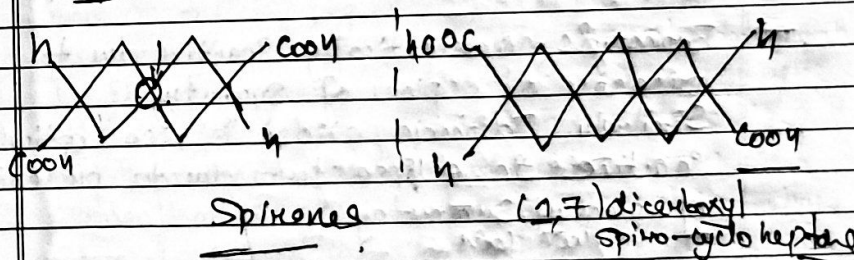 H COOH HOOC H
COOH H H COOH
Spirones (1,7) dicarboxyl
spiro-cyclo heptane